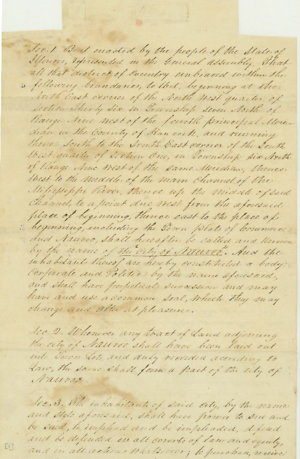 Sec. 1 Be it enacted by the people of the State of
Illinois, represented in the General assembly, That
all that district of Country embraced within the
following boundaries, to wit, beginning at the
North East corner of the North West quarter of
Section thirty Six in Township seven North of
Range Nine west of the fourth principal Meri-
dian in the County of Hancock, and running
thence South to the North East corner of the South
West quarter of Section One, in Township Six North
of Range Nine West of the Same Meridian, thence
West to the Middle of the main channel of the
Mississippi River, thence up the middle of said
Channel to a point due west from the aforesaid
place of beginning, thence east to the place of
beginning, including the Town plats of Commerce
and Nauvoo, shall hereafter be called and known
by the name of the "City of Nauvoo" And the
inhabitants thereof are hereby constituted a body-
Corporate and Politic by the name aforesaid,
and shall have perpetual succession and may
have and use a common seal, which they may
change and alter at pleasure.
Sec. 2. Whenever any tract of Land adjoining
the city of Nauvoo shall have been laid out
into Town Lots and duly recorded according to
Law, the same shall form a part of the city of
Nauvoo.
Sec. 3. The inhabitants of said city, by the name
and style aforesaid, shall have power to sue and
be sued, to implead and be impleaded, defend
and be defended in all courts of Law and equity,
and in all actions whatsoever; to purchase, receive